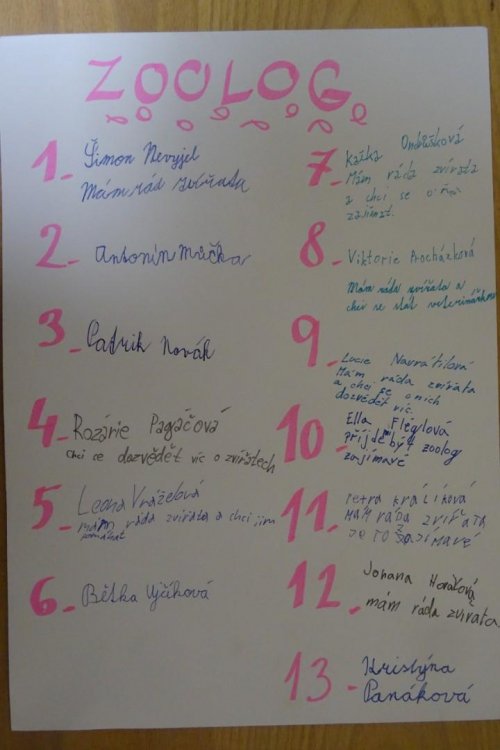 ZOOLOG
1. Šimon Nevyjel
Mám rád zvířada
2. Antonín Mučka
3. Padrik Novák
4. Rozárie Pagáčová
Chci se dozvědět víc o zvířatech
5. Leona
mám ráda zvířata a chci jim
pomáhat
6. Bětka Vyčíková
7. Katka Ondrůšková
Mám ráda zvířata
a chci se o ně
zajímat.
8. Viktorie Procházková
Mám ráda zvířata a
chci se stát veterinářkou
9. Lucie Navrátilová
Mám ráda zvířata
a chci se o nich
dozvědět víc.
10. Ella Fléglová
příjde mi být zoolog
zajímavé
11. Petra Králíková
MÁM RÁDA ZVÍŘATA
JE TO ZAJÍMAVÉ
12. Johana Horáčková
mám ráda zvířata
13. Kristýna
Panáková